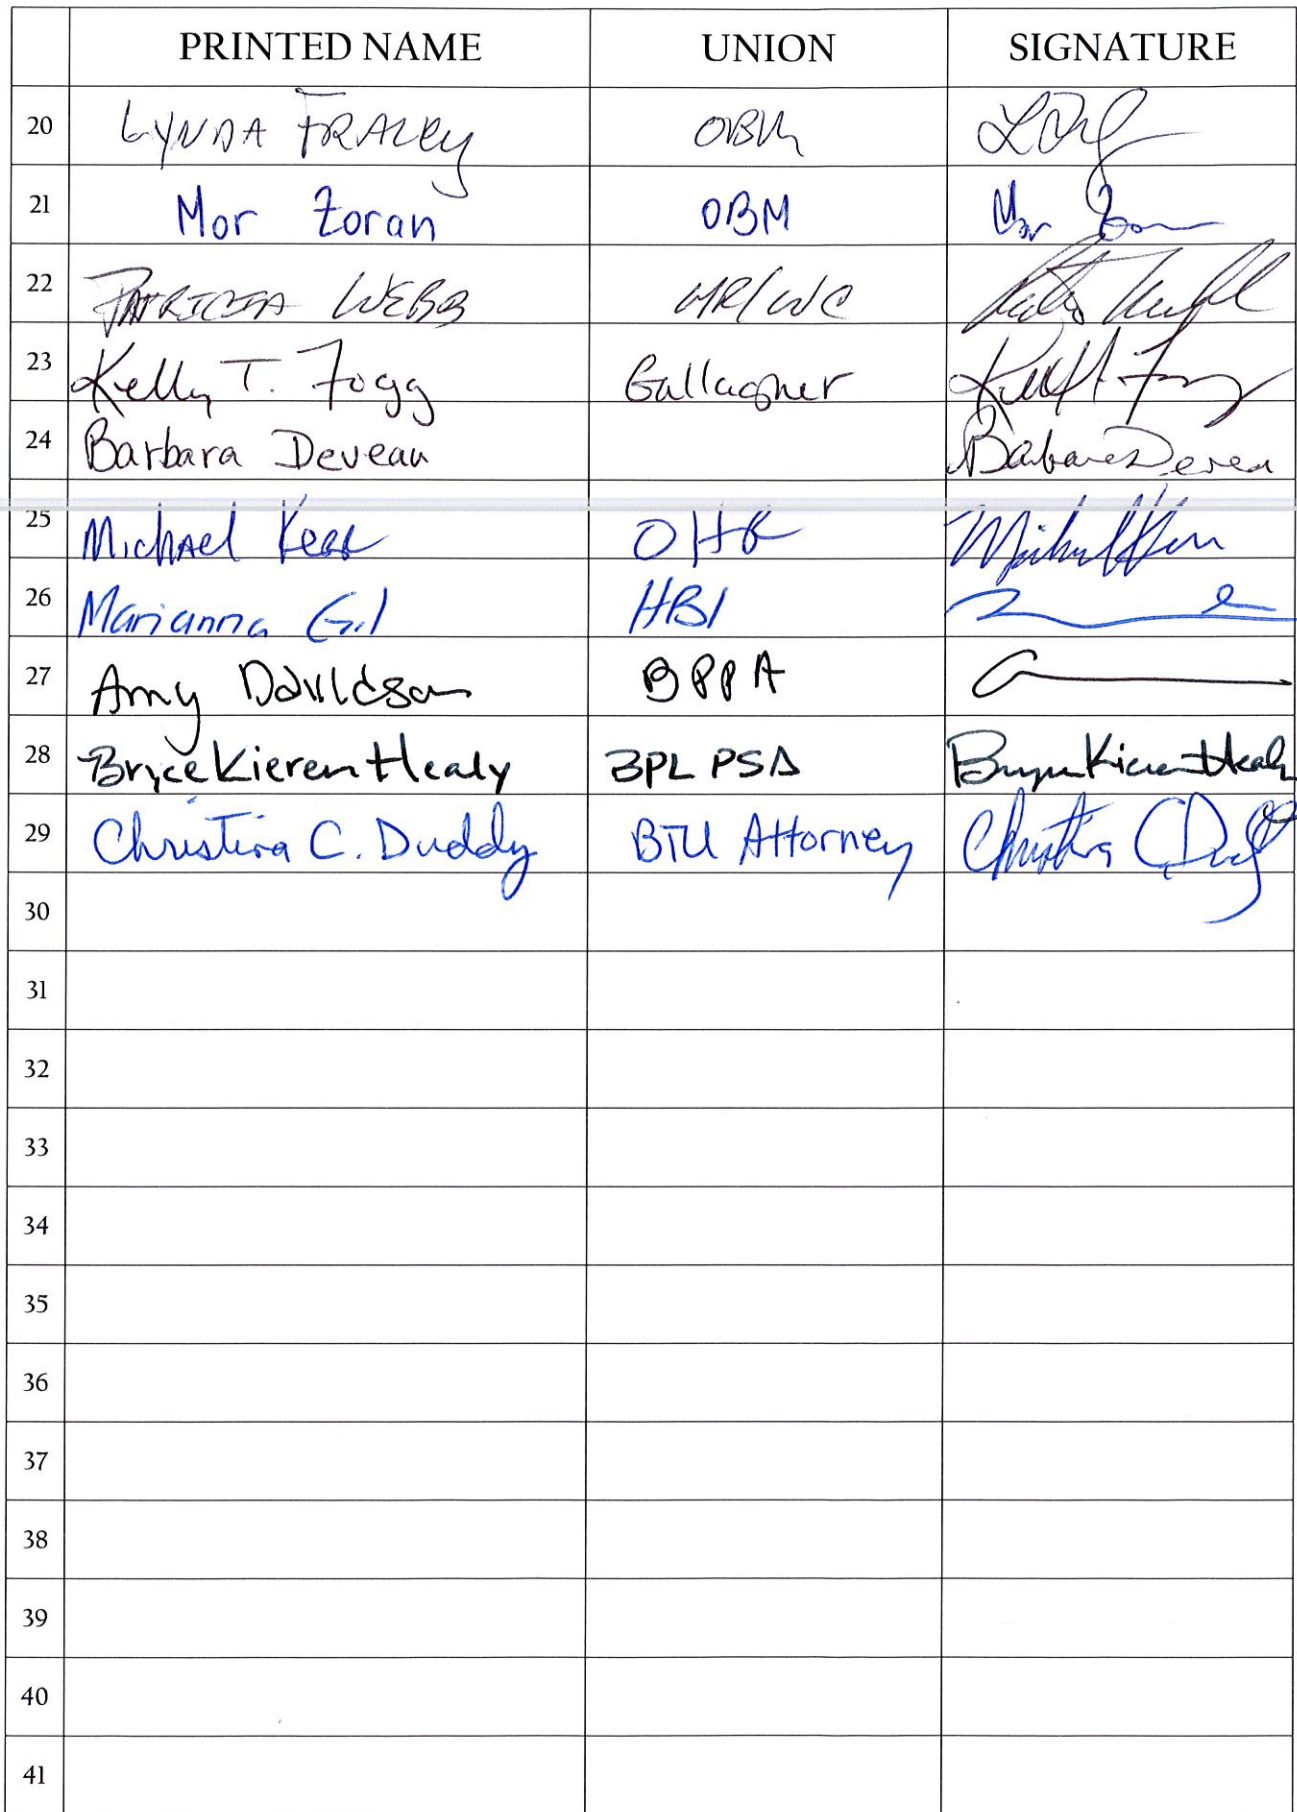 PRINTED NAME UNION SIGNATURE
20 LYNDA FRALEY OBM
21 Mor Zoran OBM Mor Zoran
22 PATRICIA WEBB HR/WC
23 Kelly T. Fogg Gallagher
24 Barbara Deveau Barbara Deveau
25 Michael Kerr OHR
26 Marianna Gil HBI
27 Amy Davidson BPPA
28 Bryce Kieren Healy BPL PSA Bryce Kieren Healy
29 Christina C. Duddy BTU Attorney
30
31
32
33
34
35
36
37
38
39
40
41